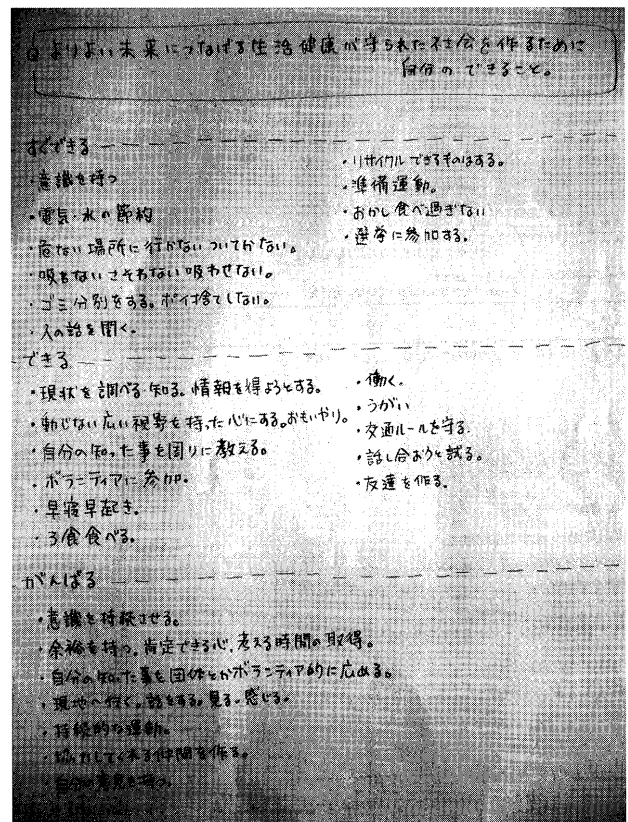 Q よりよい未来につなげる生活健康が守られた社会を作るために
自分のできること。
すぐできる
・意識を持つ
・電気・水の節約
・危ない場所に行かない ついてかない。
・吸わない さそわない 吸わせない。
・ゴミ分別をする。ポイ捨てしない。
・人の話を聞く。
・リサイクルできるものはする。
・準備運動。
・おかし食べ過ぎない
・選挙に参加する。
できる
・現状を調べる 知る。情報を得ようとする。
・動じない広い視野を持った心にする。おもいやり。
・自分の知った事を周りに教える。
・ボランティアに参加。
・早寝早起き。
・3食食べる。
・働く。
・うがい
・交通ルールを守る.
・話し合おうと試る。
・友達を作る.
がんばる
・意識を持続させる。
・余裕を持つ。肯定できる心、考える時間の取得。
・自分の知った事を団体とかボランティア的に広める。
・現地へ行く。話をする。見る。感じる。
・持続的な運動。
・協力してくれる仲間を作る。
・自分の意見を持つ。